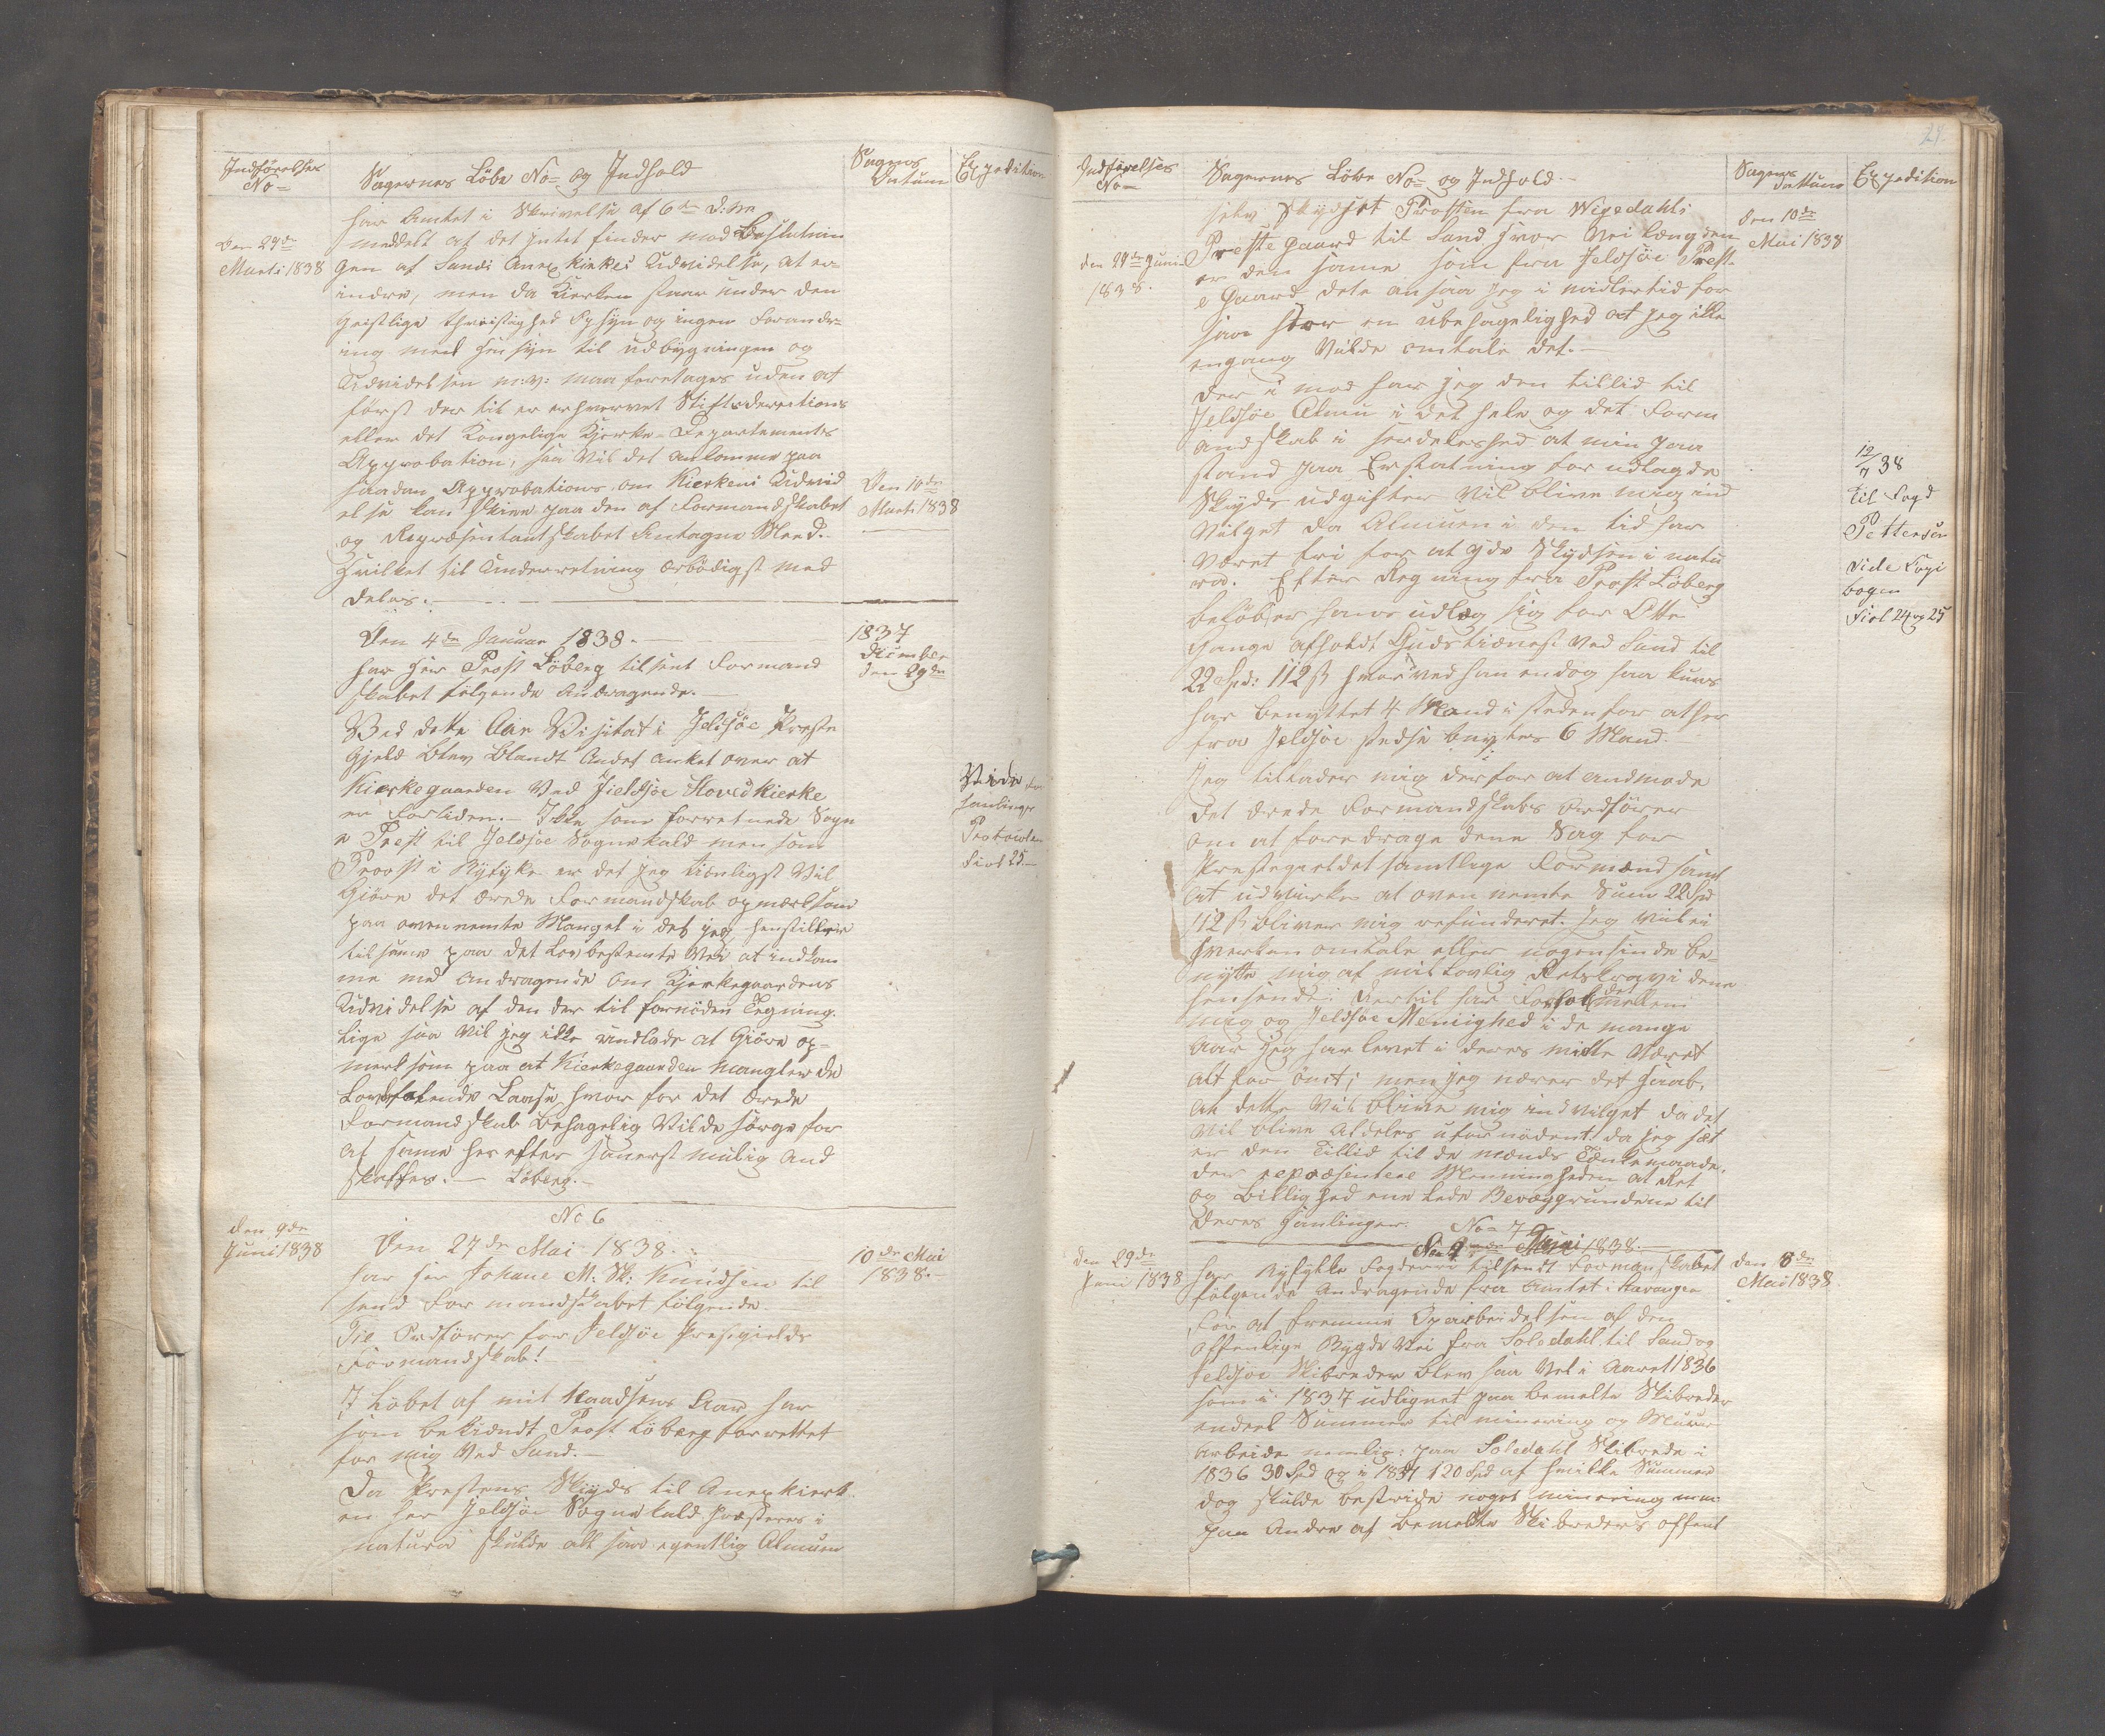 Indførelses
No=
Sagernes Løbe No= og Indhold
Sagens
Datum
Expedition
Den 29de
Marti 1838
har Amtet i Skrivelse af 6te d: M
meddelt at det intet finder mod Beslutnin
gen af Sands Anex Kirkes Udvidelse, at er=
indre, men da Kierken staar under den
Geistlige Opsyn og ingen Forandr=
ing med Hensyn til udbygningen og
Udvidelsen m: v: maa foretages uden at
først der til er erhvervet Stiftsderectionens
eller det Kongelige Kjerke-Departements
Approbation, saa vil det ankomme paa
saadan Approbations om Kierkens Udvid
else kan skee paa den af Formandskabet
og Repræsentantskabet Antagne Maade.
Hvilket til Underretning ærbødigst med
deles.
Den 10de
Marti 1838
Den 4de Januar 1838.
har Hr Prost Løberg tilsent Formand
skabet følgende Andragende.
1837
December
den 29de
Ved dette Aars Visitats i Jelsøe Preste
Gjeld blev blandt Andet anket over at
Kierkegaarden ved Jelsøe Hovedkierke
er for liden. Ikke som forretnede Sogn
e Prest til Jelsøe Sognekald men som
Proost i Ryfylke er det jeg tienligst vil
Giøre det ærede Formandskab opmærksom
paa ovennemte Mangel i det jeg henstiller
til samme paa det Lov bestemte Vei at indkom
me med Andragende om Kjerkegaardens
Udvidelse af den der til fornøden Tegning.
Lige saa vil jeg ikke undlade at Giøre op=
merksom paa at Kierkegaarden mangler de
Lovbefalende Laase, hvor for det ærede
Formandskab behagelig vilde sørge for
at samme her efter snarest mulig and
skaffes. Løberg.
Vide For
hanlings
Protocolen
Fiol 25
No 6
den 9de
Juni 1838
Den 27de Mai 1838.
har Hr Johane M: Sk: Knudsen til
send Formandskabet følgende
10de Mai
1838.
Til Ordfører for Jelsøe Prestgields
Formandskab!
I Løbet af mit Naadsens Aar har
som bekiendt Prost Løberg forrettet
for mig ved Sand.
Da Prestens Skyds til Anexkierk
en her Jelsøe Sognekald præsteres i
natura skulde alt saa egentlig Almuen
21
Indførelses
No=
Sagernes Løbe No= og Indhold.
Sagens
Dattum
Expedition
den 29de Juni
1838.
selv skydset Prosten fra Wigedahls
Prestegaard til Sand hvor Vei længden
er den samme som fra Jelsøe Prest-
e Gaard dete ansaa jeg i midlertid for
saa stor en ubehagelighed at jeg ikke
engang vilde omtale det.
den 10de
Mai 1838
Der i mod har jeg den tillid til
Jelsøe Almue i det hele og det Form
andskab i serdeleshed at min paa
stand paa Erstatning for udlagde
Skyds udgifter vil blive mig ind
vilget da Almuen i den tid har
været fri for at yde Skydsen i natu
ra. Efter Regning fra Prost Løberg
beløber hans udlæg sig for Otte
Gange afholdt Gudstieneste ved Sand til
22 Spd: 112 ß hvor ved han endog saa kuns
har benyttet 4 Mand i steden for at her
fra Jelsøe stedse benyttes 6 Mand.
12/7 38
til Fogd
Pettersen
vide Copi
bogen
Fiol 24 og 25
Jeg tillader mig derfor at anmode
det ærede Formandskabs Ordfører
om at foredrage dene Sag for
Prestegieldet samtlige Formænd samt
at udvirke at ovennemte Sum 22 Spd
112 ß bliver mig refunderet. Jeg vil ei
hverken omtale eller nogensinde be=
nytte mig af mit Lovlig Retskrav i dene
henseende. Dertil har Forholdet mellem
mig og Jelsøe Meniighed i de mange
Aar jeg har levet i deres midte været
alt for ømt; men jeg nærer det Haab,
at dette vil blive mig indvilget da det
vil blive aldeles ufornødent da jeg sæt
er den Tillid til de mænds Tænkemaade,
der repræsentere Menigheden at Ret
og Billighed ene lede Bevæggrundene til
deres Hanlinger.
No= 7
1838.
den 29de
Juni 1838
har Ryfylke Fogderie tilsendt Formanskabet
følgende Andragende fra Amtet i Stavanger
den 8de
Mai 1838.
For at fremme Oparbeidelsen af den
offentlige Bygde Vei fra Soledahl til Sand og
Jelsøe Skibreder blev saa vel i Aaret 1836
som i 1837 udlignet paa bemelte Skibreder
endeel Summer til minering og Muur
arbeide nemlig: paa Soledahl Skibrede i
1836 30 Spd og i 1837 120 Spd af hvilke Summer
dog skulde bestride noget minering m.m.
paa Andre af bemelte Skibreders offent